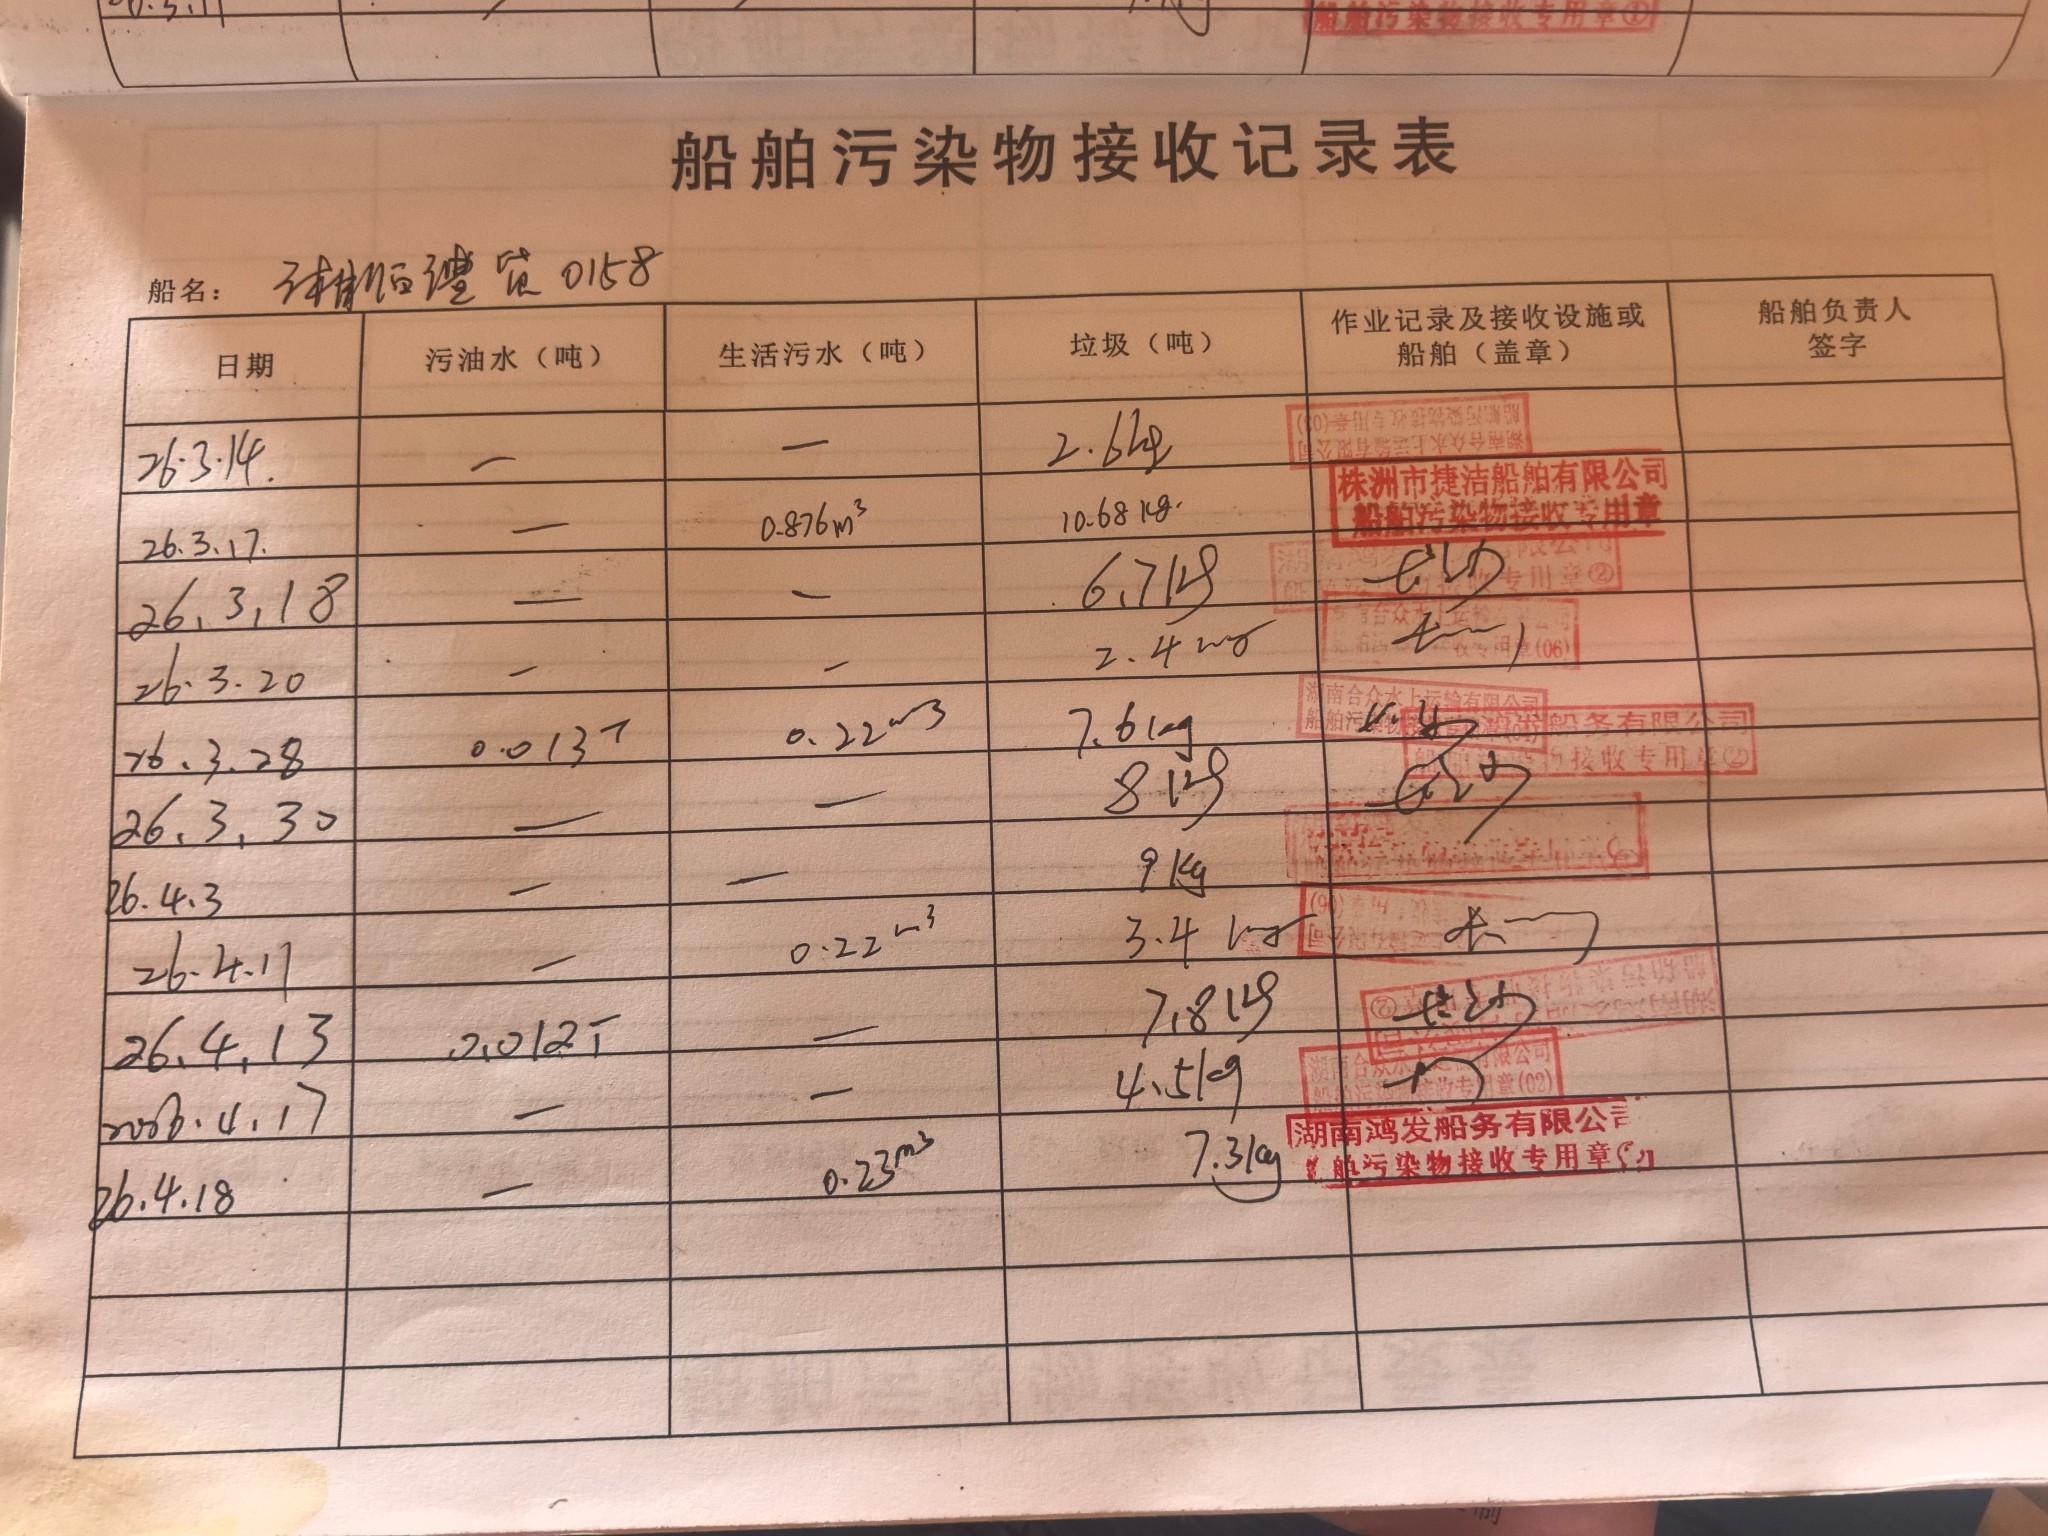 船舶污染物接收专用章①
船舶污染物接收记录表
船名： 货 0158
日期 污油水（吨） 生活污水（吨） 垃圾（吨） 作业记录及接收设施或船舶（盖章） 船舶负责人签字
26.3.14. — — 2.6kg
湖南合众水上运输有限公司
船舶污染物接收专用章(03)
26.3.17. — 0.876m³ 10.68kg.
株洲市捷洁船舶有限公司
船舶污染物接收专用章
26.3.18 — — 6.7kg 长沙
专用章②
26.3.20 — — 2.4kg
合众水上运输有限公司
接收专用章(06)
26.3.28 0.013T 0.22m³ 7.6kg
湖南合众水上运输有限公司
船舶污染物
26.3.30 — — 8kg 长沙
船务有限公司
物接收专用章②
26.4.3 — — 9kg
26.4.11 — 0.22m³ 3.4kg
26.4.13 0.012T — 7.8kg 长沙
2026.4.17 — — 4.5kg
湖南合众水上运输有限公司
船舶污染物接收专用章(02)
26.4.18 — 0.23m³ 7.3kg
湖南鸿发船务有限公司
船舶污染物接收专用章